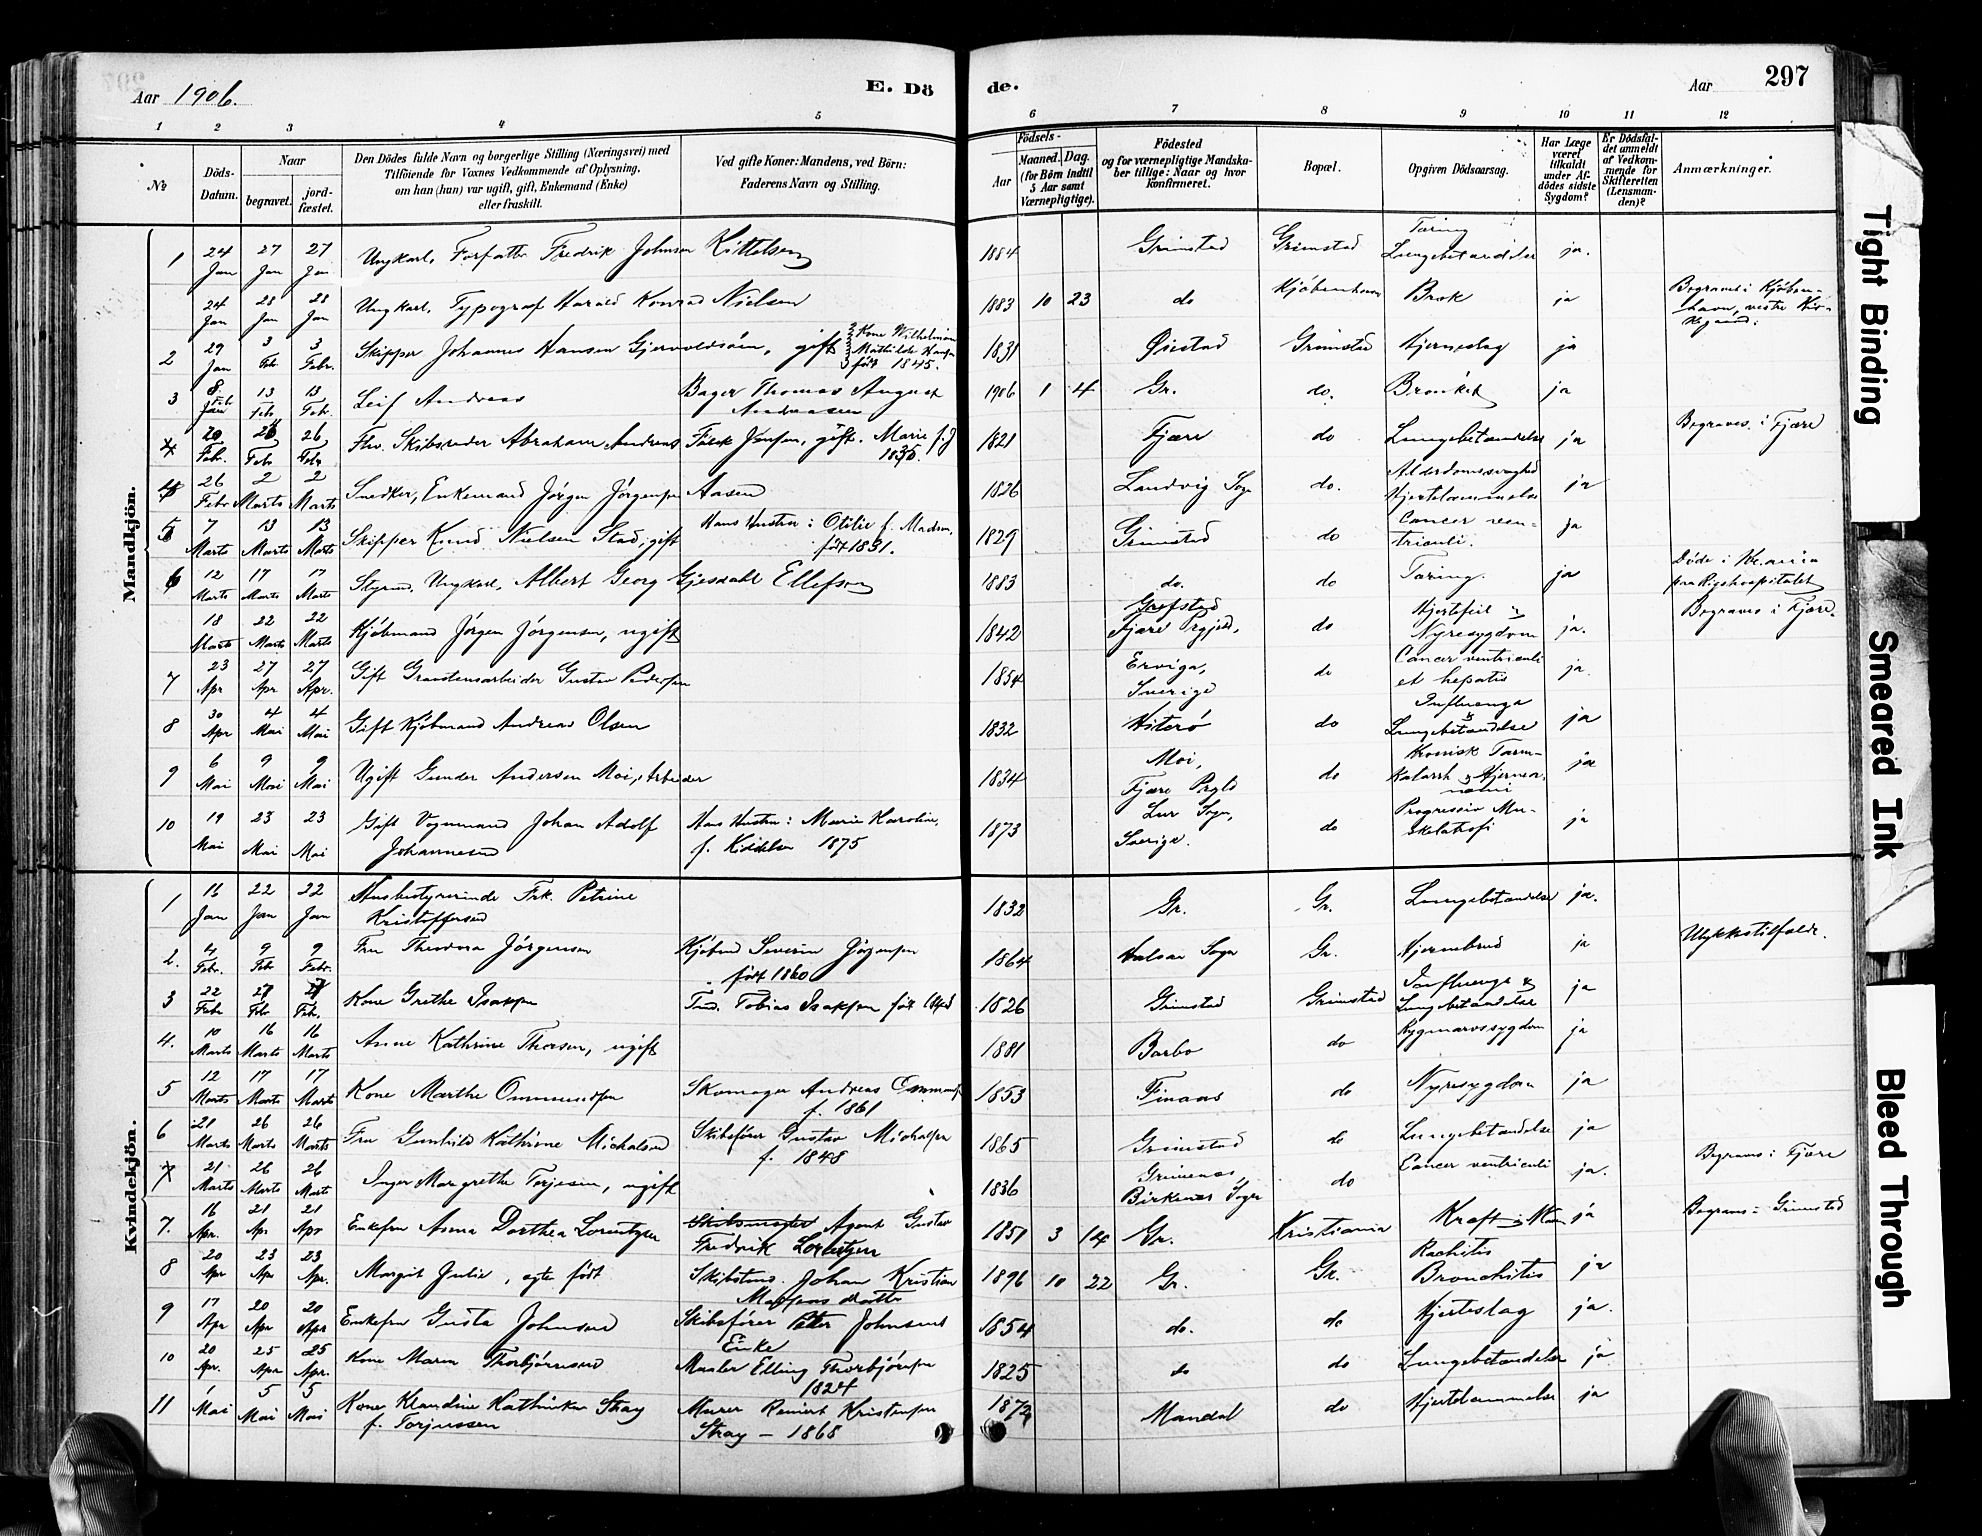 Aar 1906. E. Dö de. Aar 297
1 2 3 4 5 6 7 8 9 10 11 12
No
Döds-Datum.
Naar
begravet.
jord-fæstet.
Den Dödes fulde Navn og borgerlige Stilling (Næringsvei) med
Tilföiende for Voxnes Vedkommende af Oplysning,
om han (hun) var ugift, gift, Enkemand (Enke)
eller fraskilt.
Ved gifte Koner: Mandens, ved Börn:
Faderens Navn og Stilling.
Födsels-
Aar
Maaned. Dag.
(for Börn indtil
5 Aar samt
Værnepligtige).
Födested
og for værnepligtige Mandska-
ber tillige: Naar og hvor
konfirmeret.
Bopæl.
Opgiven Dödsaarsag.
Har Læge
været
tilkaldt
under Af-
dödes sidste
Sygdom?
Er Dödsfal-
det anmeldt
af Vedkom-
mende for
Skifteretten
(Lensman-
den)?
Anmærkninger.
Mandkjön.
1 24 Jan 27 Jan 27 Jan Ungkarl, Forfatter Fredrik Johnsen Kittelsen 1884 Grimstad Grimstad Tæring Lungebetændelse ja.
24 Jan 28 Jan 28 Jan Ungkarl, Typograf Harald Konrad Nielsen 1883 10 23 do Kjöbenhavn Brok ja Begraves i Kjöben-
havn, vestre Kir-
kegaard.
2 29 Jan 3 Feb. 3 Febr. Skipper Johannes Hansen Gjervoldsöen, gift Kone Wilhelmine
Mathilde Hansen
født 1845. 1831 Öiestad Grimstad Hjerneslag ja
3 8. Feb 13 Feb 13 Feb. Leif Andreas Bager Thomas August
Andreasen 1906 1 4 Gr. do. Bronkit ja
4 20 Febr. 26 Febr 26 Febr Fhv. Skibsreder Abraham Andreas Falck Jensen, gift. Marie f. J
1835. 1821 Fjære do Lungebetændelse ja Begraves i Fjære
4 26 Febr 2 Marts 2 Marts Snedker, Enkemand Jörgen Jörgensen Aasen 1826 Landvig Sogn do. Alderdomssvaghed
Hjertelammelse ja
5 7 Marts 13 Marts 13 Marts Skipper Knud Nielsen Stad, gift Hans Hustru: Otilie f. Madsen,
født 1831. 1829 Grimstad do Cancer ven-
triculi. ja
6 12 Marts 17 Marts 17 Marts Styrm. Ungkarl, Albert Georg Gjesdahl Ellefsen 1883 do. do Tæring. ja Döde i Kr.ania
paa Rigshospitalet
18 Marts 22 Marts 22 Marts Kjöbmand Jörgen Jörgensen, ugift 1842 Grefstad
Fjære Prgjeld, do Hjertefeil &
Nyresygdom ja. Begraves i Fjære.
7 23 Apr 27 Apr 27 Apr. Gift Granstensarbeider Gustav Pedersen 1854 Erviga,
Sverige do Cancer ventriculi
et hepatis ja.
8 30 Apr 4 Mai 4 Mai Gift Kjöbmand Andreas Olsen 1832 Hiterö do Influenza
&
Lungebetændelse ja
9 6 Mai 9 Mai 9 Mai Ugift Gunder Andersen Moi, Arbeider 1834 Moi,
Fjære Prgld do Kronisk Tarm-
katarrh & Hjernea-
næmi ja
10 19 Mai 23 Mai 23 Mai Gift Vognmand Johan Adolf
Johannesen Hans Hustru: Marie Karoline,
f. Kiddelsen 1875 1873 Lur Sogn,
Sverige. do Progressiv Mu-
skelatrofi ja
Kvindekjön.
1 16 Jan 22 Jan 22 Jan Husbestyrerinde Frk. Petrine
Kristoffersen 1832 Gr. Gr. Lungebetændelse ja.
2. 4 Febr. 9 Feb 9 Febr. Fru Theodora Jörgensen Kjöbmd Severin Jörgensen
født 1860 1864 Halsaa Sogn Gr. Hjernebrud ja Ulykkestilfælde.
3 22 Febr 27 Feb 27 Feb. Kone Grethe Isaksen Tmd. Tobias Isaksen født 1826 Grimstad Grimstad Influenza &
Lungebetændelse ja
4. 10 Marts 16 Marts 16 Marts Anne Kathrine Thorsen, ugift 1881 Barbo do Rygmarvssygdom ja
5 12 Marts 17 Marts 17 Marts Kone Marthe Ommundsen Skomager Andreas Ommunds
f. 1861 1853 Finaas do Nyresygdom ja
6 21 Marts 26 Marts 26 Marts Fru Gunhild Kathrine Michalsen Skibsförer Gustav Michalsen
f. 1848 1865 Grimstad do Lungebetændelse ja
7 21 Marts 26 Marts 26 Marts Inger Margrethe Terjesen, ugift 1836 Grimenes
Birkenes Sogn do Cancer ventriculi ja. Begraves i Fjære
7. 16 Apr. 21 Apr 21 Apr Enkefru Anna Dorthea Lorentzen Skibsmægler Agent Gustav
Fredrik Lorentzen 1851 3 14 Gr. Kristiania Kræft i ja Begraves i Grimstad
8 20 Apr 23 Apr 23 Apr. Margit Julie, egte født Skibstmd. Johan Kristian
Datter 1896 10 22 Gr. Gr. Rachitis
Bronchitis ja
9 17 Apr 20 Apr 20 Apr Enkefru Gusta Johnsen Skibsförer Peter Johnsens
Enke 1854 do. do Hjerteslag ja.
10 20 Apr. 25 Apr 25 Apr. Kone Maren Thorbjörnsen Maaler Elling Thorbjörnsen
1824 1825 do do Lungebetændelse ja
11 1 Mai 5 Mai 5 Mai Kone Klandine Kathinka Stray
f. Torjussen Murer Reinert Kristensen
Stray - 1868 1872 Mandal do Hjertelammelse ja
Tight Binding
Smeared Ink
Bleed Through